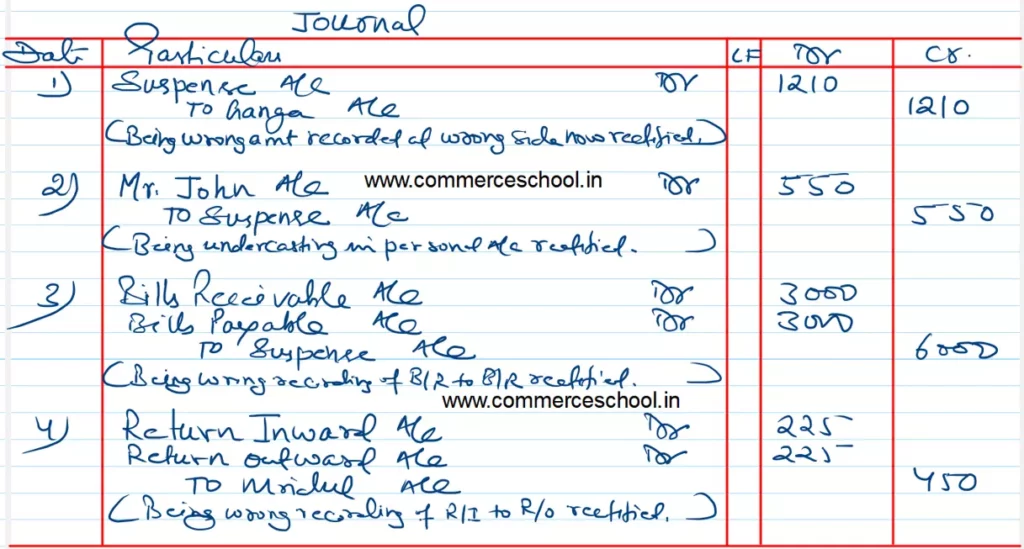 Journal
Date Particulars LF Dr Cr.
1) Suspense A/c Dr 1210
To Ganga A/c 1210
(Being wrong amt recorded at wrong side now rectified.)
2) Mr. John A/c www.commerceschool.in Dr 550
To Suspense A/c 550
(Being undercasting in personal A/c rectified.)
3) Bills Receivable A/c Dr 3000
Bills Payable A/c Dr 3000
To Suspense A/c 6000
(Being wrong recording of B/R to B/R rectified.)
www.commerceschool.in
4) Return Inward A/c Dr 225
Return outward A/c Dr 225
To Mridul A/c 450
(Being wrong recording of R/I to R/O rectified.)